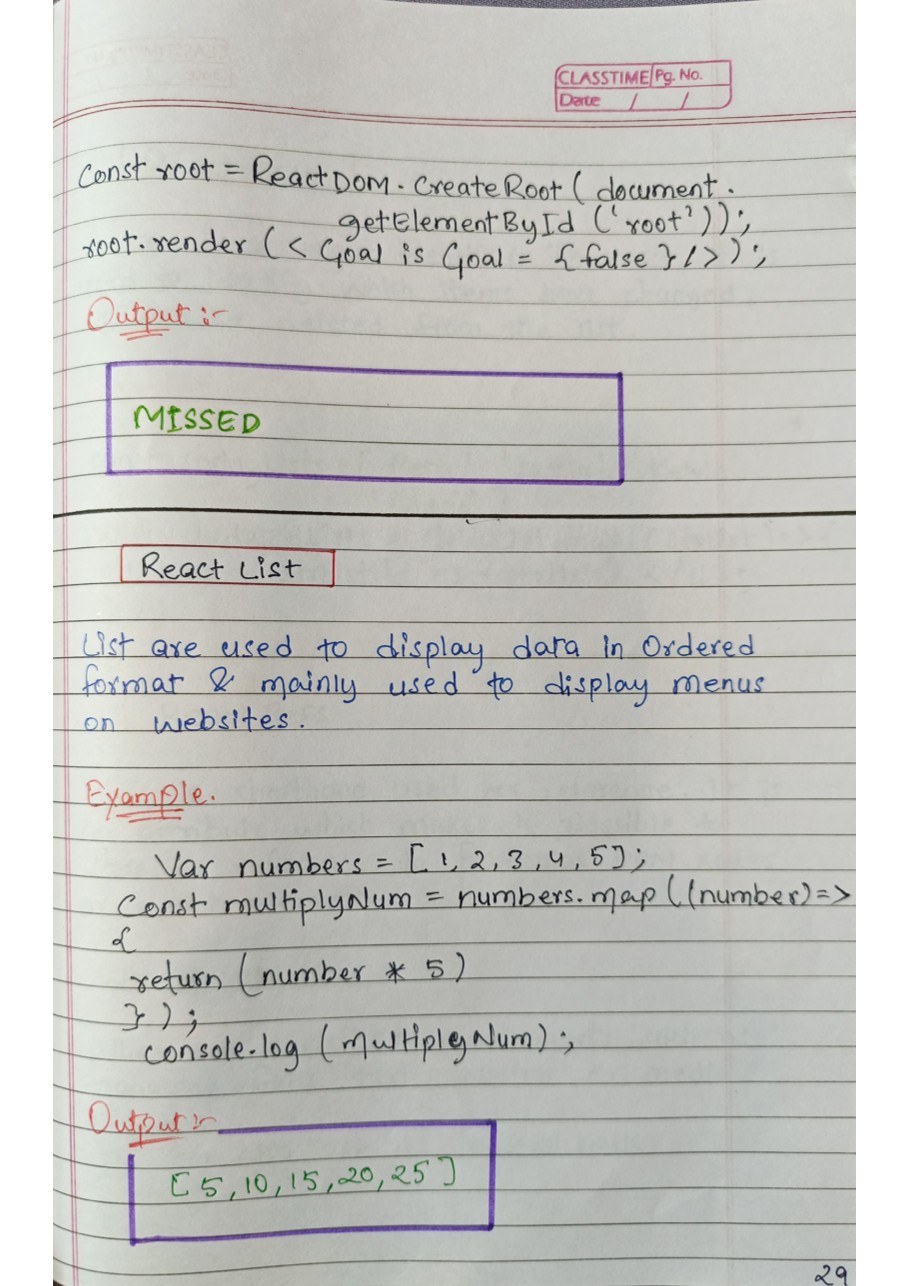 CLASSTIME Pg. No.
Date / /
Const root = ReactDOM.CreateRoot ( document.
getElementById ('root'));
root.render (< Goal is Goal = {false} />);
Output :-
MISSED
React List
List are used to display data in Ordered
format & mainly used to display menus
on websites.
Example.
Var numbers = [1, 2, 3, 4, 5];
Const multiplyNum = numbers.map ((number)=>
{
return (number * 5)
});
console.log (multiplyNum);
Output :-
[5, 10, 15, 20, 25]
29